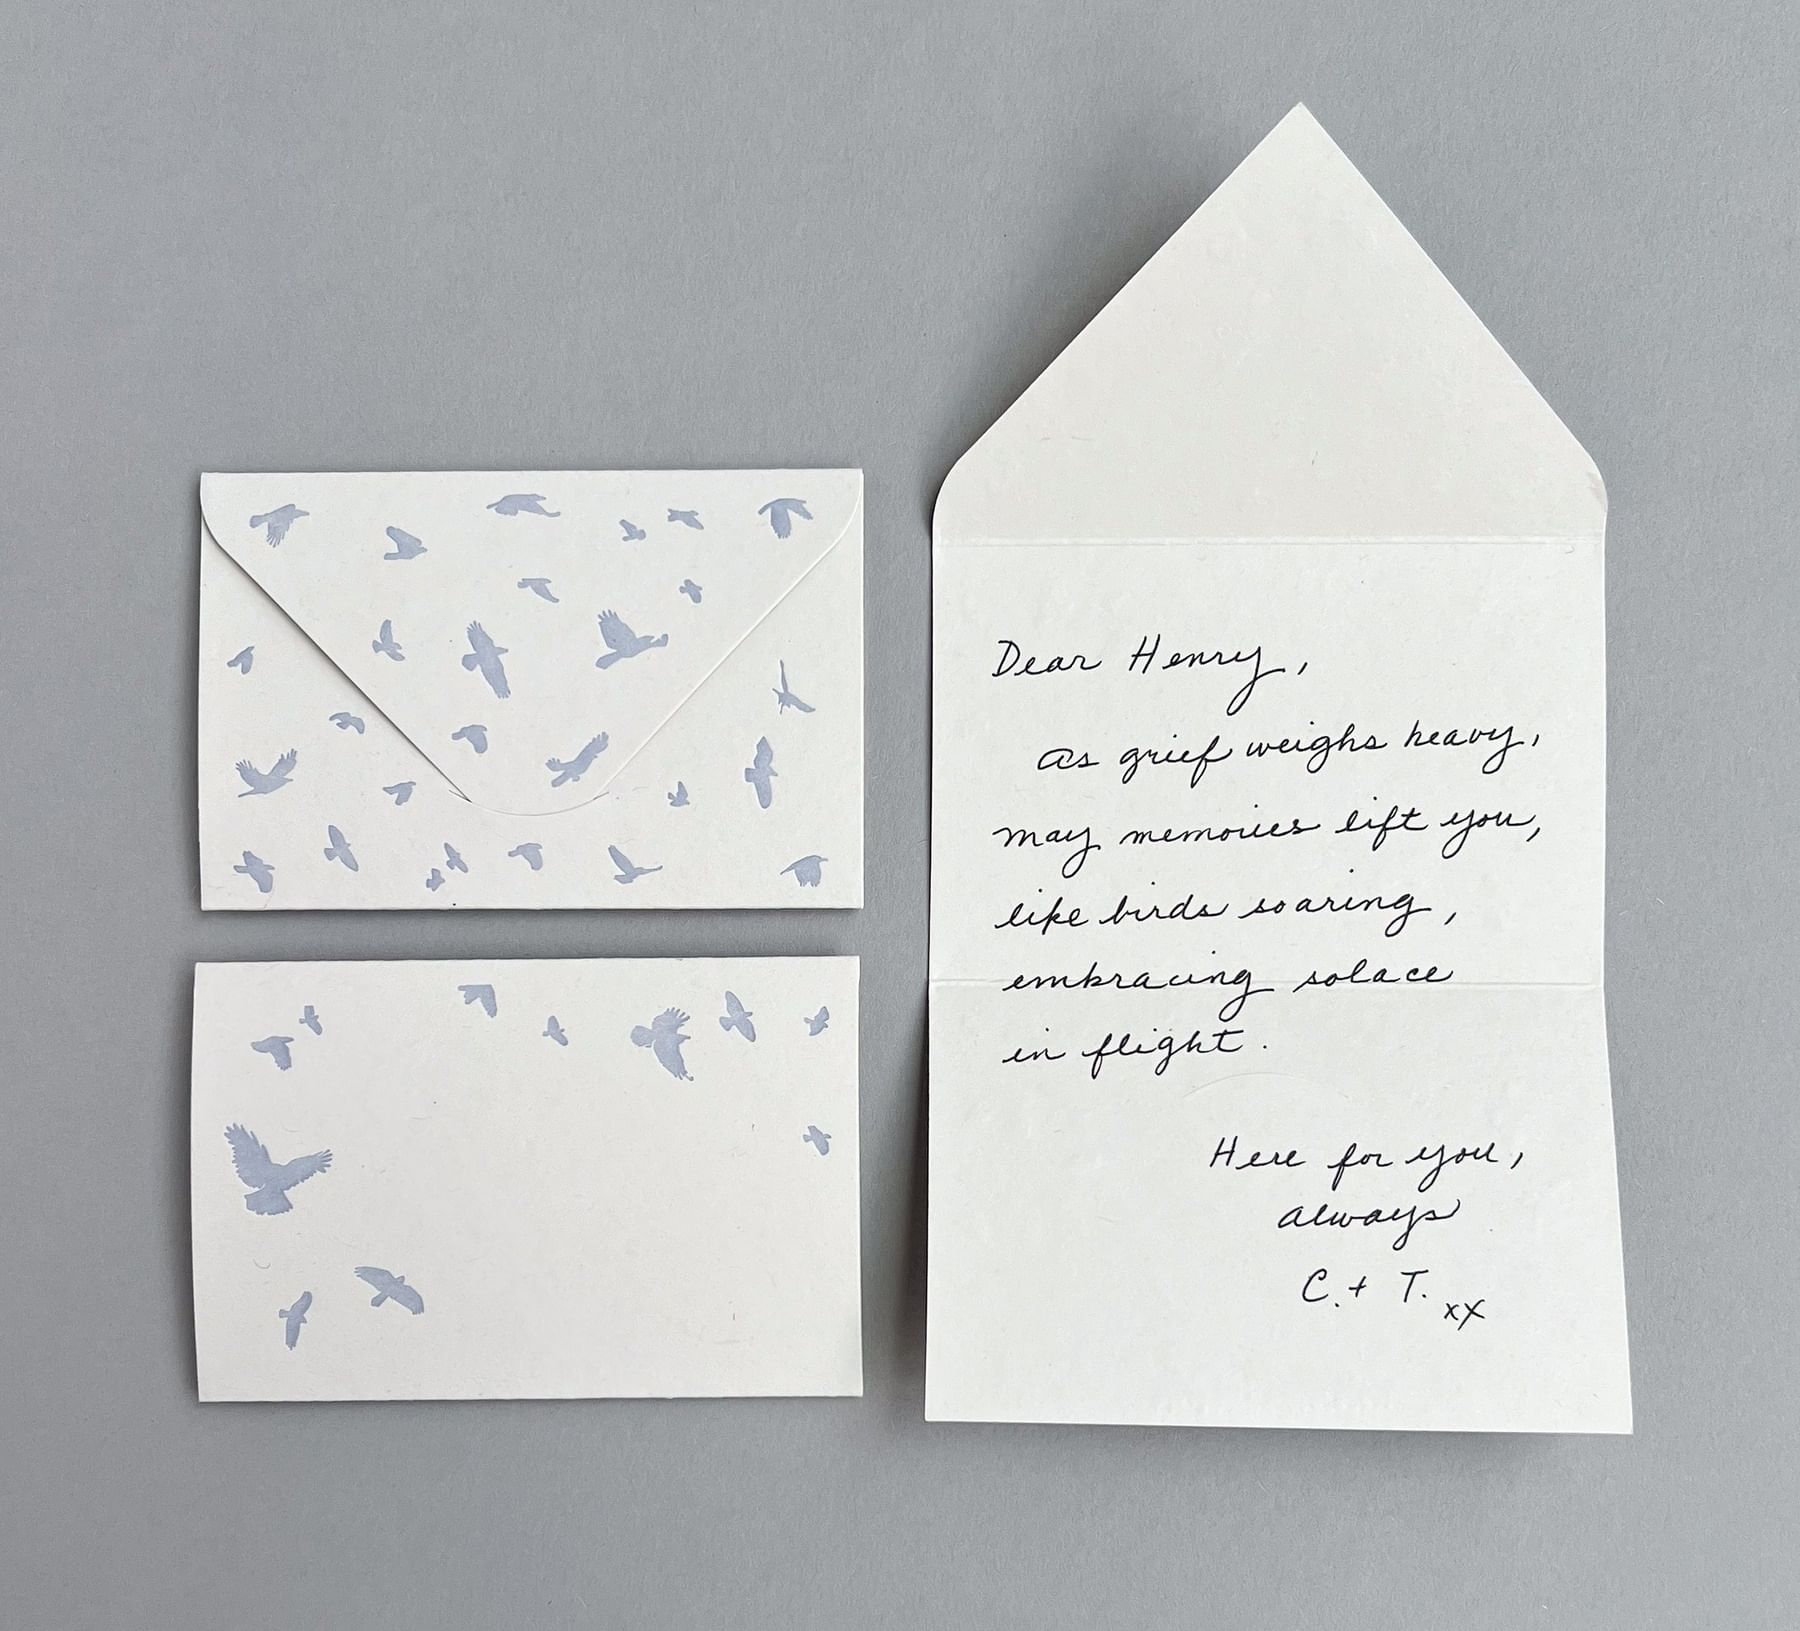 Dear Henry,
as grief weighs heavy,
may memories lift you,
like birds soaring,
embracing solace
in flight.
Here for you,
always
C. + T. xx